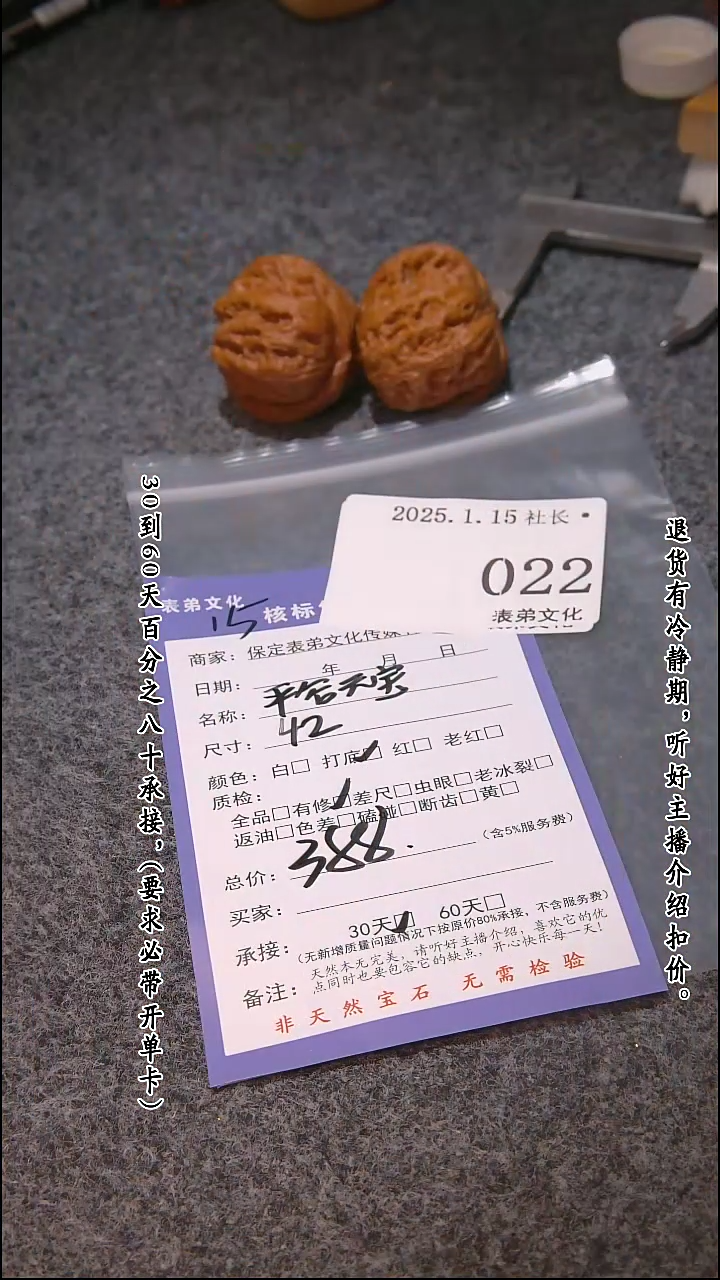 2025.1.15 社长
022
表弟文化
表弟文化
15
核标
商家：保定表弟文化传媒
日期： 年 月 日
名称：
尺寸：42
颜色：白□ 打底☑ 红□ 老红□
质检：
全品□有修☑差尺□虫眼□老冰裂□
返油□色差□磕碰□断齿□黄□
总价：388. （含5%服务费）
买家：
承接：30天☑ 60天□
（无新增质量问题情况下按原价80%承接，不含服务费）
备注：天然本无完美，请听好主播介绍，喜欢它的优
点同时也要包容它的缺点，开心快乐每一天！
非天然宝石 无需检验
30到60天百分之八十承接，（要求必带开单卡）
退货有冷静期，听好主播介绍扣价。